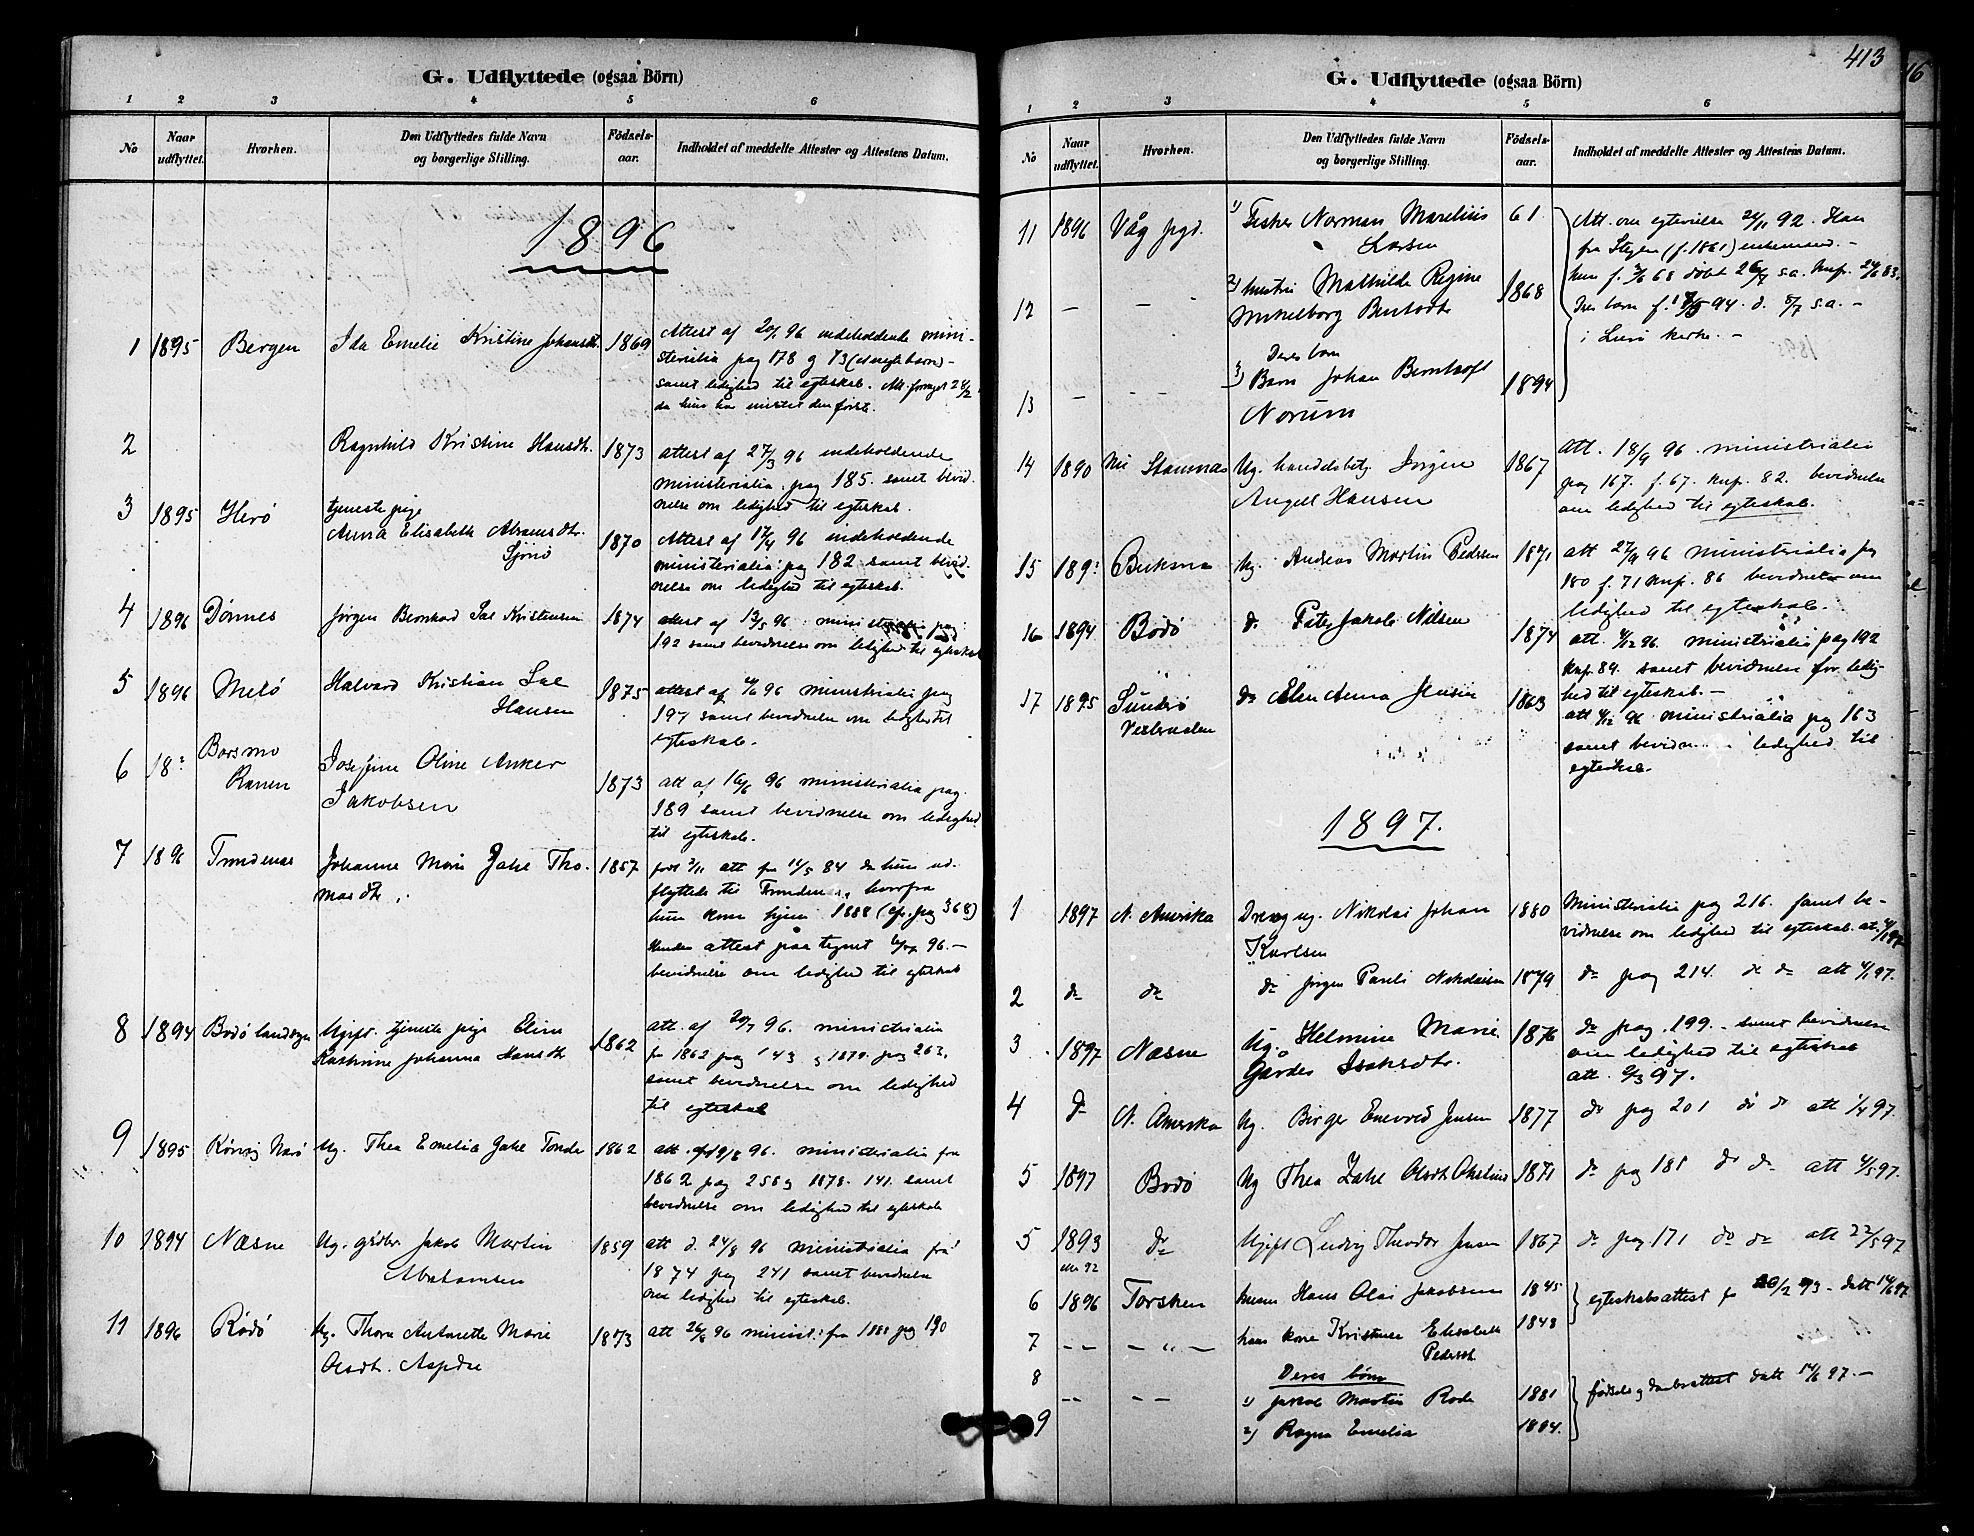 G. Udflyttede (ogsaa Börn)
1 2 3 4 5 6
No
Naar udflyttet.
Hvorhen.
Den Udflyttedes fulde Navn og borgerlige Stilling.
Födsels-aar.
Indholdet af meddelte Attester og Attestens Datum.
1896
1 1895 Bergen Ida Emelie Kristine Johansdt. 1869 Attest af 20/1 96 indeholdende mini-
sterialia pag 178 g 73
samt ledighed til egteskab. Att. fornyet
da hun har mistet den första.
2 Ragnhild Kristine Hansdt. 1873 attest af 27/3 96 indeholdende
ministerialia pag 185. samt bevid-
nelse om ledighed til egteskab.
3 1895 Herö tjenestepige
Anna Elisabeth Abramsdtr. 1870 Attest af 17/4 96 indeholdende
Sjönö
ministerialia pag 182 samt bevid-
nelse om ledighed til egteskab.
4 1896 Dönnes Jörgen Bernhard Sal Kristensen 1874 attest af 13/5 96 ministerialia pag
192 samt bevidnelse om ledighed til egteskab
5 1896 Melö Halvard Kristian Sal 1875 attest af 96 ministrialia pag
Hansen
197 samt bevidnelse om ledighed til
egteskab.
6 18 Barsmo
Ranen
Josefine Oline Anker 1873
Jakobsen
att af 16/6 96 ministrialia pag.
189 samt bevidnelse om ledighed
til egteskab.
7 1896 Trondenas Johanne Marie Zahl Tho- 1857
masdtr.
att fr 14/5 84 da hun ud-
flyttede til Tronden hvorfra
hun kom hjem 1888 (cfr. pag 368)
Hendes attest paategnet 96.-
bevidnelse om ledighed til egteskab
8 1894 Bodö landsogn Ugift. tjenestepige Eline 1862 att. af 20/7 96. ministrialia
Kathrine Johanna Hansdtr
fr 1862 pag 143 g 1878. pag 263,
samt bevidnelse om ledighed
til egteskab
9 1895 Rörvig Narö Ug. Thea Emelia Zahl Tonder 1862 att. af 19/8 96. ministrialia fra
1862 pag 258 g 1878. 141. samt
bevidnelse om ledighed til egteskab
10 1894 Næsne Ug. grdbr. Jakob Martin 1859 att d. 24/8 96 ministrialia fra
Abrahamsen
1874 pag 241 samt bevidnelse
om ledighed til egteskab.
11 1896 Rödö Ug. Thora Antonette Marie 1873 att 26/8 96 minist. fra 1888 pag 190
Olsdt. Aspdal
413
G. Udflyttede (ogsaa Börn)
1 2 3 4 5 6
No
Naar udflyttet.
Hvorhen.
Den Udflyttedes fulde Navn og borgerlige Stilling.
Födsels-aar.
Indholdet af meddelte Attester og Attestens Datum.
11 1896 Våg pgd. 1) Fisker Norman Marelius 61
Larsen
Att. om egtevielse 24/11 92. Han
fra Stegen (f. 1861) enkemand.-
12 - - 2) hustru Mathilde Regine 1868
Mikelborg
hun f. 3/6 68 döbt 26/7 s.a. Knf. 24/6 83.
Deres barn f. 94. d. 8/7 s.a. -
i Lurö kerke. -
Deres barn
13 - - - 3) Barn Johan Bernhoft 1894
Norum
14 1890 Stamnas Ug. handelsbetj. Jörgen 1867
Angell Hansen
Att. 18/9 96. ministrialia
pag 167. f. 67. Knf. 82. bevidnelse
om ledighed til egteskab.
15 189 Buksna Ug. Andreas Martin Pedersen 1871 att 27/9 96 ministerialia pag
180 f. 71 Knf. 86 bevidnelse om
ledighed til egteskab.
16 1894 Bodö do Peter Jakob Nilsen 1874 att. 4/12 96 ministrialia pag 192
Knf. 89. samt bevidnelse for ledig-
hed til egteskab. -
17 1895 Sunderö
Vesteraalen
do Elen Anna Jensen 1863
att 4/12 96 ministrialia pag 163
samt bevidn ledighed til
egteskab.
1897.
1 1897 N. Amerika Dreng ug. Nikolai Johan 1880 Ministerialia pag 216. samt be-
Karlsen
vidnelse om ledighed til egteskab. att.
2 do do do Jörgen Pareli Nikolaisen 1879 do pag 214. do do att 97.
3 1897 Næsne Ug. Helmine Marie 1876 do pag. 199. - samt bevidnelse
Gårdes Isaksdtr.
om ledighed til egteskab
att. 97.
4 do N. Amerika Ug. Birger Enevold Jensen 1877 do pag 201 do do att 97
5 1897 Bodö Ug Thea Zahl Olsdt. 1871 do pag 181 do do att 4/5 97.
5 1893 do Ugift Ludvig Theodor Jensen 1867 do pag 171 do do att 22/5 97
eller 92
6 1896 Torsken Hans Olai Jakobsen 1845
egteskabsattest fr 73 - datt 14/6 97
7 -- -"- hans kone Kristine Elisabeth 1848
Pedersdt.
8 Deres börn
-- -- 1) Jakob Martin Rode 1881
födsels g daabsattest datt 14/6 97. -
9 2) Ragna Emelia 1884.